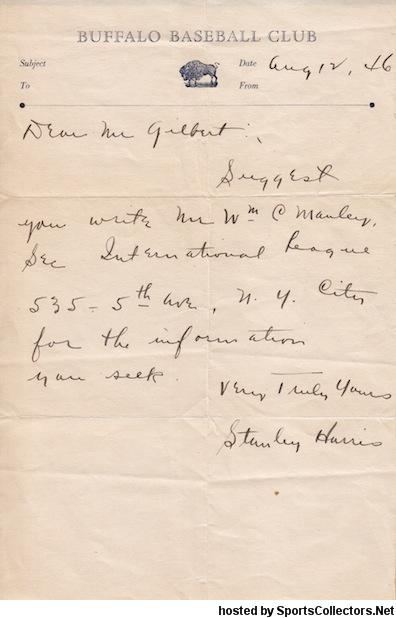 BUFFALO BASEBALL CLUB
Subject
Date Aug 12, 46
To
From
Dear Mr Gilbert:
Suggest
you write Mr Wm C Manley,
Sec International League
535 - 5th Ave, N. Y. City
for the information
you seek.
Very Truly Yours
Stanley Harris
hosted by SportsCollectors.Net